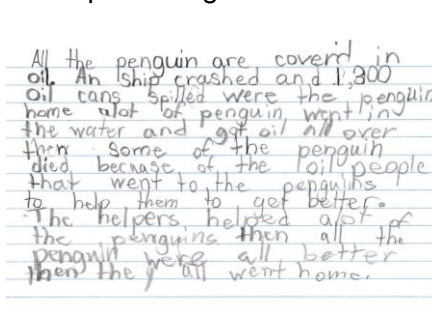 All the penguin are cover'd in
oil. An ship crashed and 1,300
Oil cans spilled were the penguin
home alot of penguin went in
the water and got oil all over
them Some of the penguin
died because of the oil people
that went to the penguins
to help them to get better.
The helpers helped alot of
the penguins then all the
penguin were all better
then the y all went home.